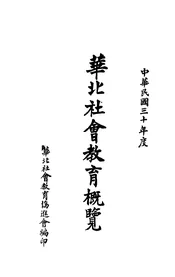 中華民國三十年度
華北社會教育概覽
華北社會教育協進會編印